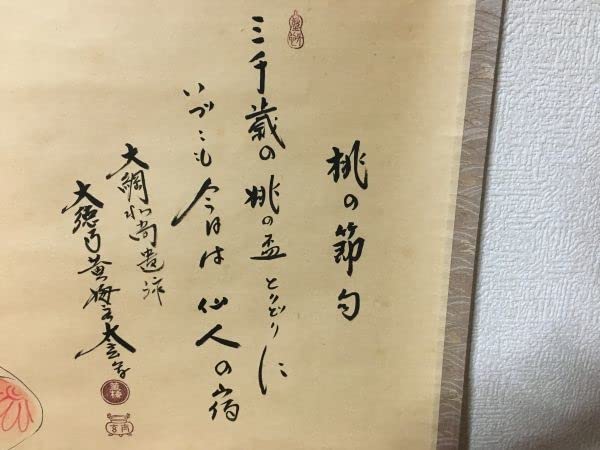 桃の節句
三千歳の桃の盃とりどりに
いづこも今日は仙人の宿
大綱和尚遺詠
大徳寺黄梅